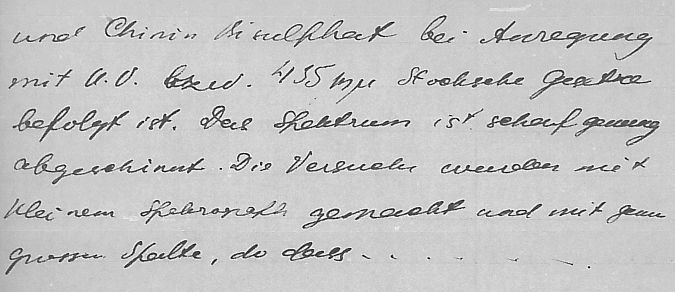 und Chinin Bisulphat bei Anregung
mit U.V. bzw. 435 mμ Stocksche Gesetze
befolgt ist. Das Spektrum ist scharf genug
. Die Versuche wurden mit
kleinem gemacht und mit ganz
grossen Spalte, so dass . . . . . .